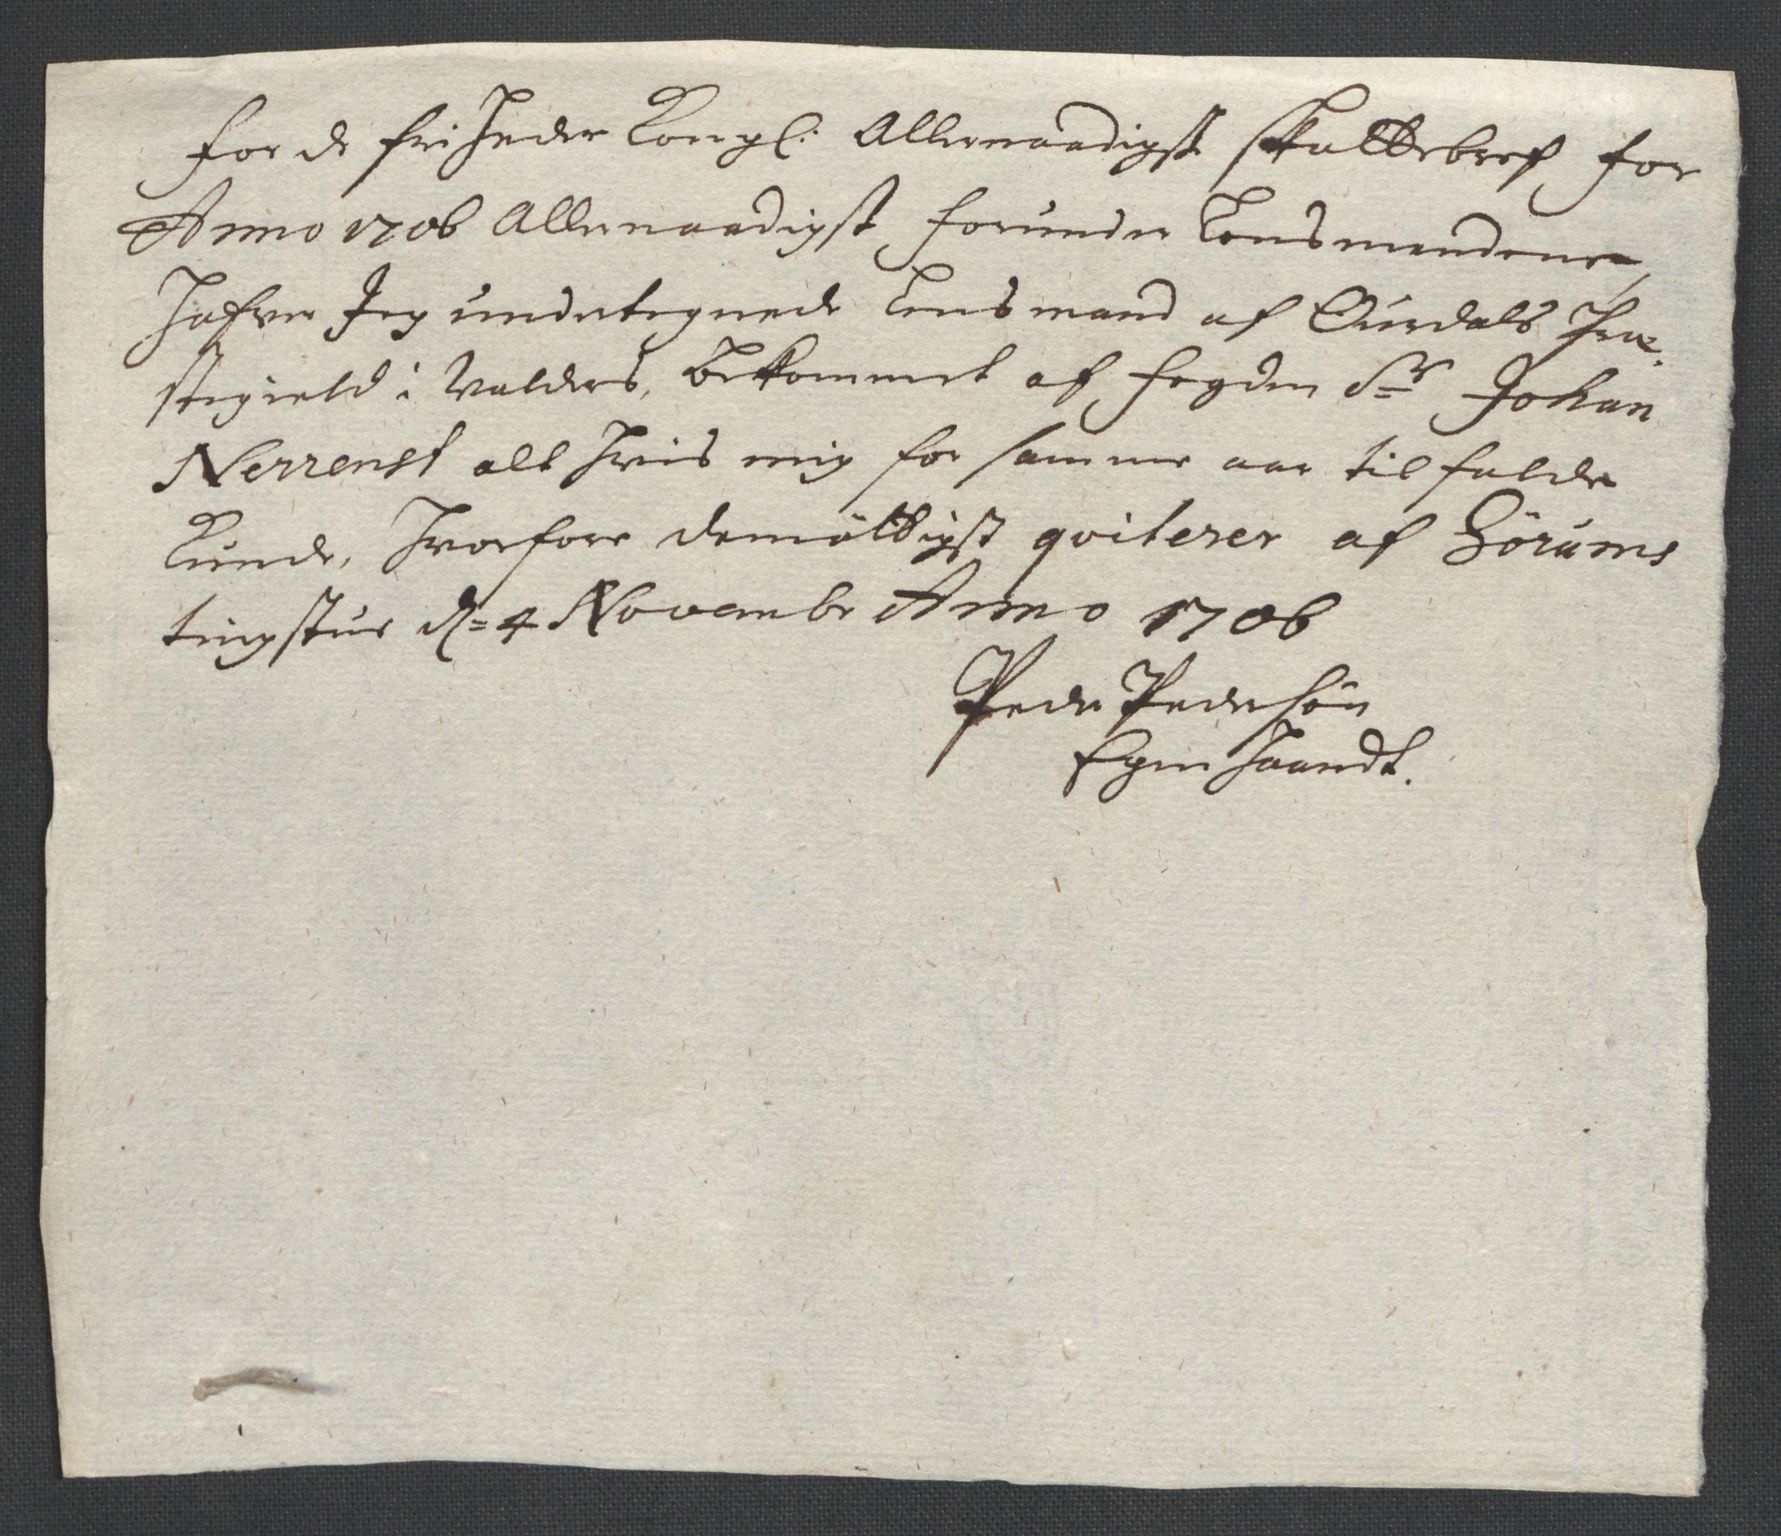 For de friheder Kongl: Allernaadigst skattebref for
Anno 1706 Allernaadigst forunder Lensmændene,
hafver Jeg undertegnede Lensmand af Ourdals Præ-
stegield i Valders, bekommet af fogden Sr Johan
Nerrenst alt hvis mig for samme aar tilfalde
kunde, hvorfore demöttigst qviterer af
tingstue d= 4 Novembr Anno 1706
Peder Pedersön
Egen haandt.